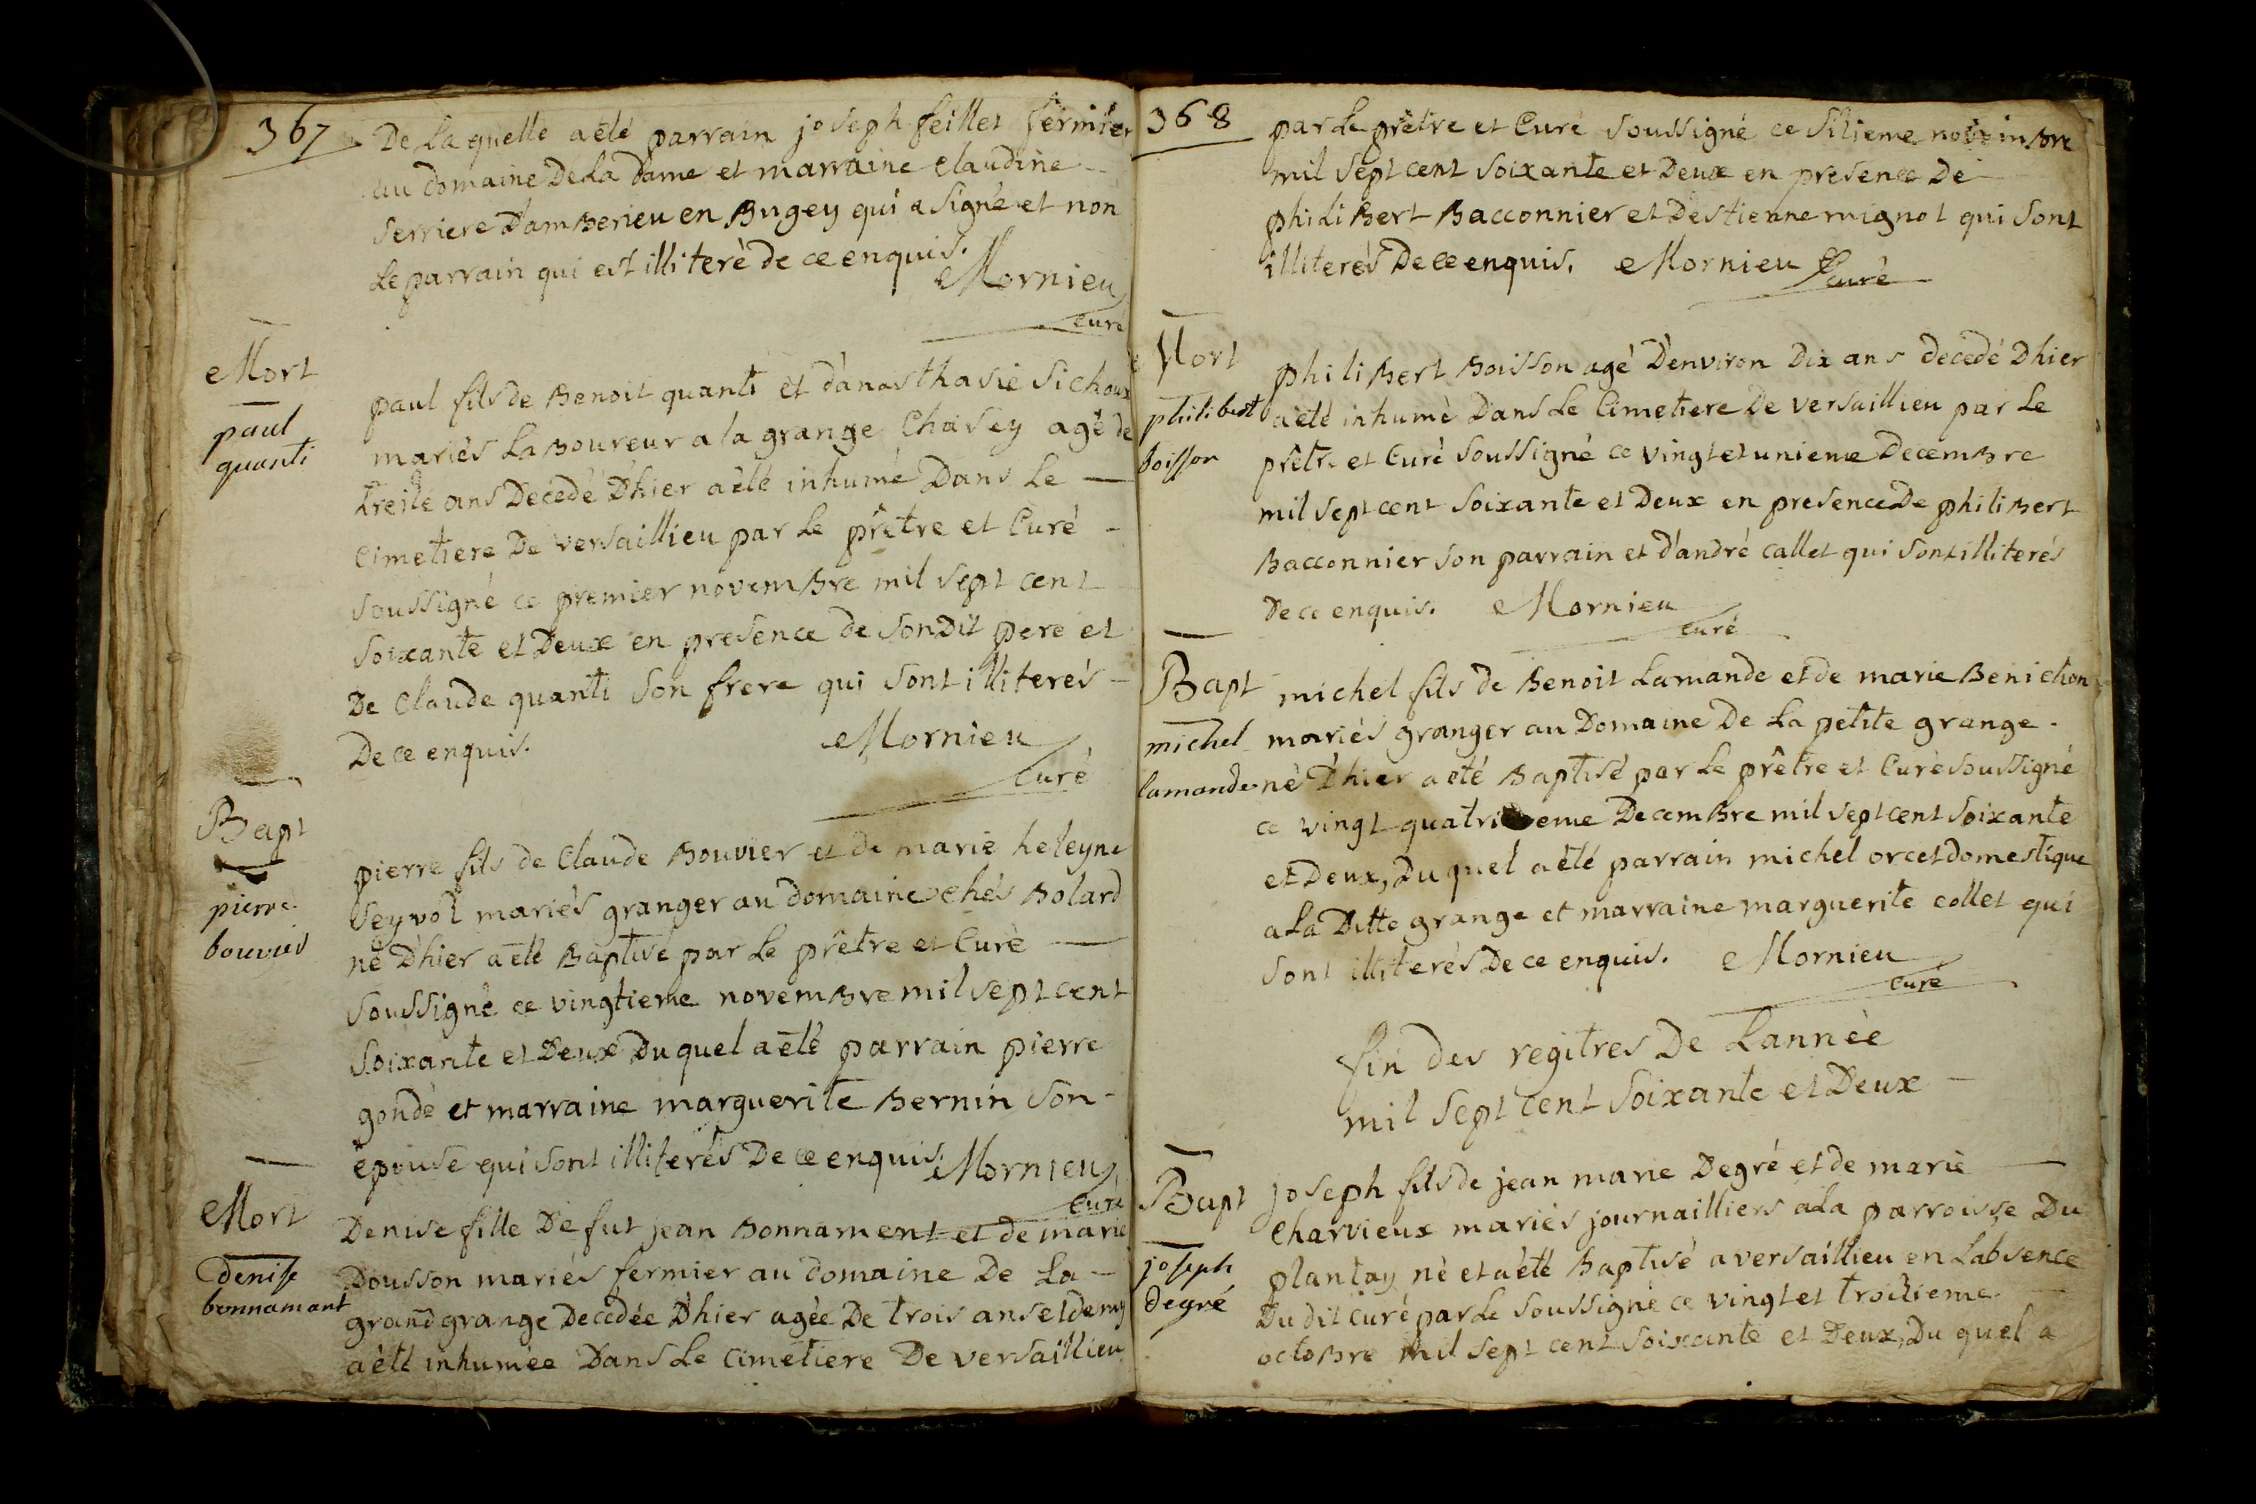 367
De La quelle a eté parrain joseph feillet fermier
au domaine De La Dame et marraine Claudine
serriere D'amberieu en Bugey qui a signé et non
Le parrain qui est illiteré de ce enquis.
Mornieu
curé
Mort
paul
quanti
paul fils de Benoit quanti et d'anasthasie Sichoux
mariés Laboureur a la grange Chasey agé de
treize ans Decedé D'hier a été inhumé Dans Le
Cimetiere De versaillieu par Le prêtre et Curé
soussigné ce premier novembre mil sept cent
soixante et Deux en presence de son Dit pere et
De Claude quanti son frere qui sont illiterés
De ce enquis.
Mornieu
Curé
Bapt
pierre
bouvier
pierre fils de Claude Bouvier et de marie heleyne
Seyvol mariés granger au domaine chés Bolard
né D'hier a eté Baptisé par Le prêtre et Curé
soussigné ce vingtieme novembre mil sept cent
soixante et Deux Du quel a eté parrain pierre
gondé et marraine marguerite Bernin son
epouse qui sont illiterés De ce enquis. Mornieu
Curé
Mort
denise
bonnamant
Denise fille De fut jean Bonnament et de marie
Dousson mariés fermier au domaine De La
grand grange Decedée D'hier agée De trois ans et demy
a été inhumée Dans Le Cimetiere De versaillieu
368
par Le prêtre et Curé soussigné ce sizieme novembre
mil sept cent soixante et Deux en presence De
philibert Bacconnier et D'estienne mignot qui sont
illiterés De ce enquis. Mornieu
Curé
Mort
philibert
boisson
philibert Boisson agé D'environ Dix ans decedé D'hier
a eté inhumé Dans Le Cimetiere De versaillieu par Le
prêtre et Curé soussigné ce vingt et unieme Decembre
mil sept cent soixante et Deux en presence De philibert
Bacconnier son parrain et d'andré callet qui sont illiterés
De ce enquis. Mornieu
curé
Bapt
michel
lamande
michel fils de Benoit Lamande et de marie Benichon
mariés granger au Domaine De La petite grange
né D'hier a eté Baptisé par Le prêtre et Curé soussigné
ce vingt quatrieme Decembre mil sept cent soixante
et Deux, Du quel a été parrain michel orcet domestique
a La Ditte grange et marraine marguerite collet qui
sont illiterés De ce enquis. Mornieu
curé
fin des regitres De L'année
mil sept cent soixante et Deux
Bapt
joseph
degré
joseph fils de jean marie Degré et de marie
Charvieux mariés journailliers a La parroisse Du
plantay né et a été Baptisé a versaillieu en L'absence
Du dit curé par Le soussigné ce vingt et troizieme
octobre mil sept cent soixante et Deux, Du quel a